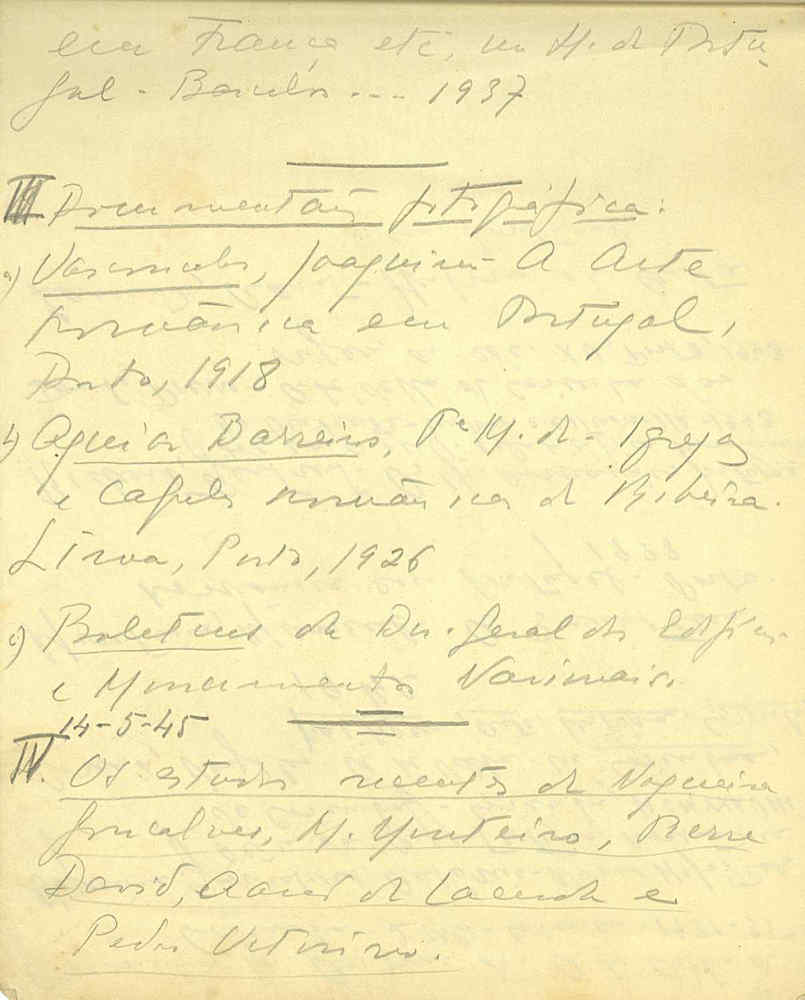 em França etc, in H. de Portu-
gal - Barcelos --- 1937
III Documentação fotográfica:
a) Vasconcelos, Joaquim - A Arte
românica em Portugal,
Porto, 1918
b) Aguiar Barreiros, Pe M. de - Igrejas
e Capelas românicas da Ribeira
Lima, Porto, 1926
c) Boletins da Dir. Geral dos Edifícios
e Monumentos Nacionais.
14-5-45
IV. Os estudos recentes de Nogueira
Gonçalves, M. Monteiro, Pierre
David, Aarão de Lacerda e
Pedro Vitorino.